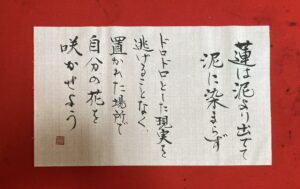 蓮は泥より出でて
泥に染まらず
ドロドロとした現実を
逃げることなく、
置かれた場所で
自分の花を
咲かせよう